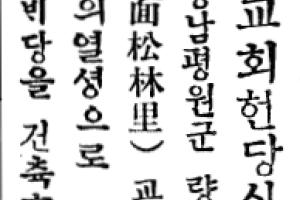 교회헌당식
남평원군 량
面松林里) 교
의열셩으로
비당을 건축